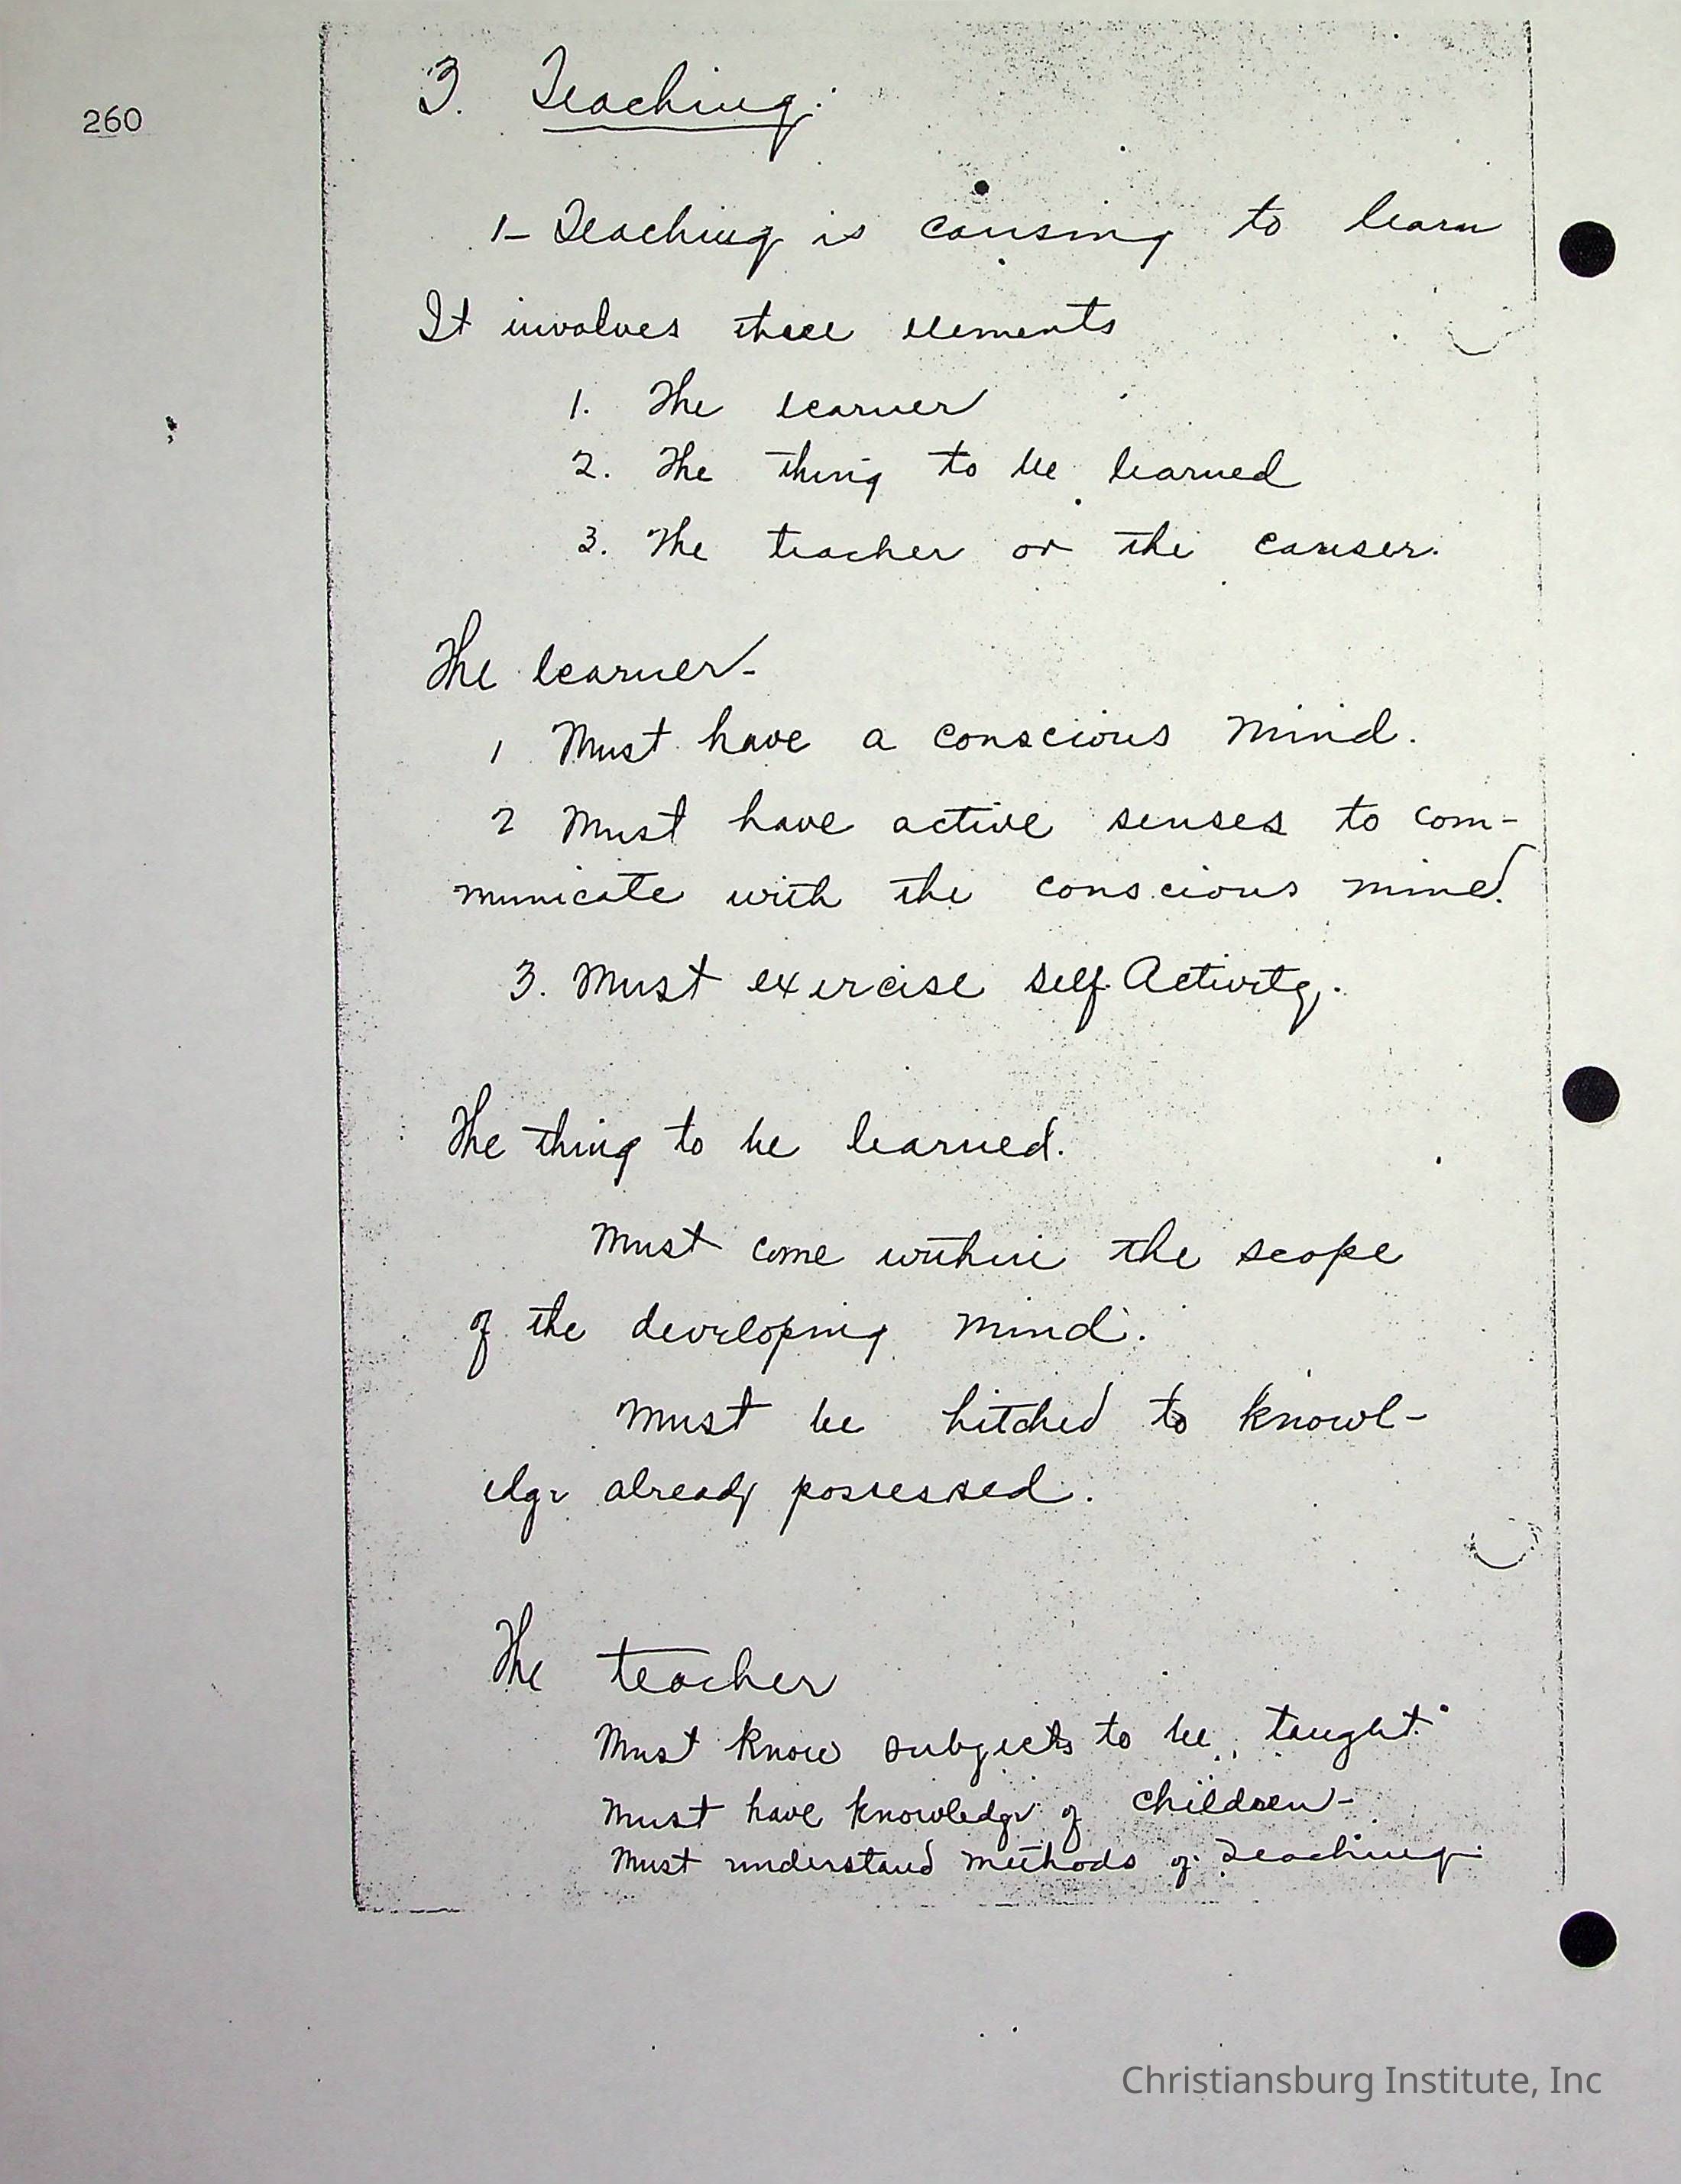 260
3. Teaching:
1- Teaching is causing to learn
It involves three elements
1. The learner
2. The thing to be learned
3. The teacher or the causer.
The learner-
1 Must have a conscious mind.
2 Must have active senses to com-
municate with the conscious mind.
3. Must exercise self Activity.
The thing to be learned.
Must come within the scope
of the developing mind.
Must be hitched to knowl-
edge already possessed.
The teacher
Must know subjects to be taught.
Must have knowledge of children-
Must understand methods of Teaching.
Christiansburg Institute, Inc